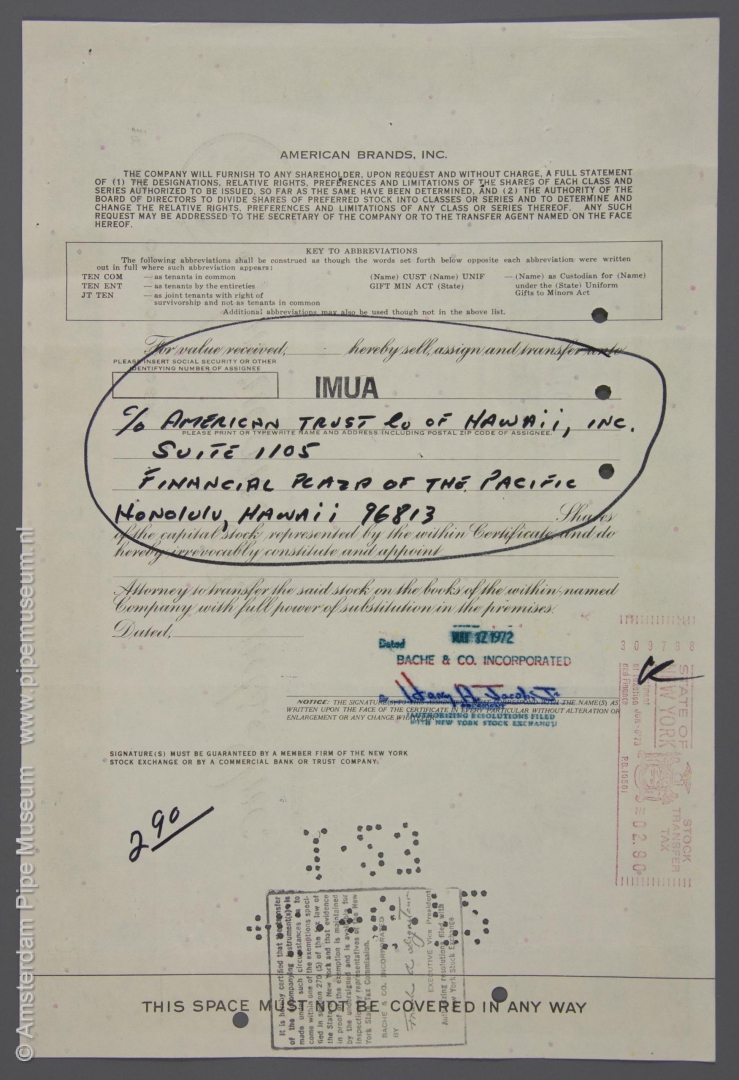 AMERICAN BRANDS, INC.
THE COMPANY WILL FURNISH TO ANY SHAREHOLDER, UPON REQUEST AND WITHOUT CHARGE, A FULL STATEMENT
OF (1) THE DESIGNATIONS, RELATIVE RIGHTS, PREFERENCES AND LIMITATIONS OF THE SHARES OF EACH CLASS AND
SERIES AUTHORIZED TO BE ISSUED, SO FAR AS THE SAME HAVE BEEN DETERMINED, AND (2) THE AUTHORITY OF THE
BOARD OF DIRECTORS TO DIVIDE SHARES OF PREFERRED STOCK INTO CLASSES OR SERIES AND TO DETERMINE AND
CHANGE THE RELATIVE RIGHTS, PREFERENCES AND LIMITATIONS OF ANY CLASS OR SERIES THEREOF. ANY SUCH
REQUEST MAY BE ADDRESSED TO THE SECRETARY OF THE COMPANY OR TO THE TRANSFER AGENT NAMED ON THE FACE
HEREOF.
KEY TO ABBREVIATIONS
The following abbreviations shall be construed as though the words set forth below opposite each abbreviation were written
out in full where such abbreviation appears:
TEN COM — as tenants in common (Name) CUST (Name) UNIF — (Name) as Custodian for (Name)
TEN ENT — as tenants by the entireties GIFT MIN ACT (State) under the (State) Uniform
JT TEN — as joint tenants with right of Gifts to Minors Act
survivorship and not as tenants in common
Additional abbreviations may also be used though not in the above list.
For value received, hereby sell, assign and transfer unto
PLEASE INSERT SOCIAL SECURITY OR OTHER
IDENTIFYING NUMBER OF ASSIGNEE
IMUA
c/o AMERICAN TRUST Co OF HAWAII, INC.
PLEASE PRINT OR TYPEWRITE NAME AND ADDRESS INCLUDING POSTAL ZIP CODE OF ASSIGNEE
SUITE 1105
FINANCIAL PLAZA OF THE PACIFIC
HONOLULU, HAWAII 96813 Shares
of the capital stock represented by the within Certificate, and do
hereby irrevocably constitute and appoint
Attorney to transfer the said stock on the books of the within-named
Company with full power of substitution in the premises.
Dated,
Dated 1972
BACHE & CO. INCORPORATED
NOTICE: THE SIGNATURE(S) TO THIS WITH THE NAME(S) AS
WRITTEN UPON THE FACE OF THE CERTIFICATE IN EVERY PARTICULAR WITHOUT ALTERATION OR
ENLARGEMENT OR ANY CHANGE
AUTHORIZING RESOLUTIONS FILED
WITH NEW YORK STOCK EXCHANGE
SIGNATURE(S) MUST BE GUARANTEED BY A MEMBER FIRM OF THE NEW YORK
STOCK EXCHANGE OR BY A COMMERCIAL BANK OR TRUST COMPANY.
STATE OF
NEW YORK
STOCK
TRANSFER
TAX
290
BACHE & CO. INCORPORATED
BY
EXECUTIVE Vice President
Authorizing resolutions filed with
New York Stock Exchange
THIS SPACE MUST NOT BE COVERED IN ANY WAY
© Amsterdam Pipe Museum www.pipemuseum.nl